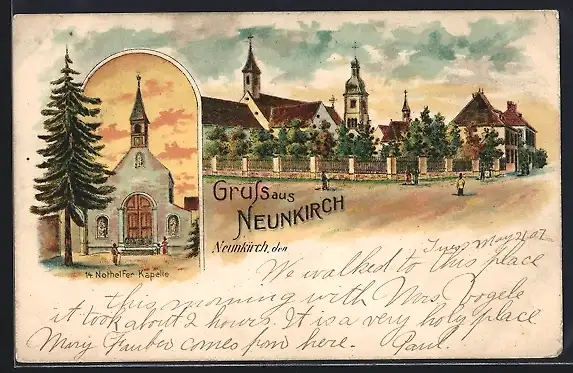 Gruſs aus
NEUNKIRCH
Neunkirch, den
14 Nothelfer Kapelle
Tues May 21 07
We walked to this place
this morning with Mrs. Vogele
it took about 2 hours. It is a very holy place
Mary Fauber comes from here. Paul.